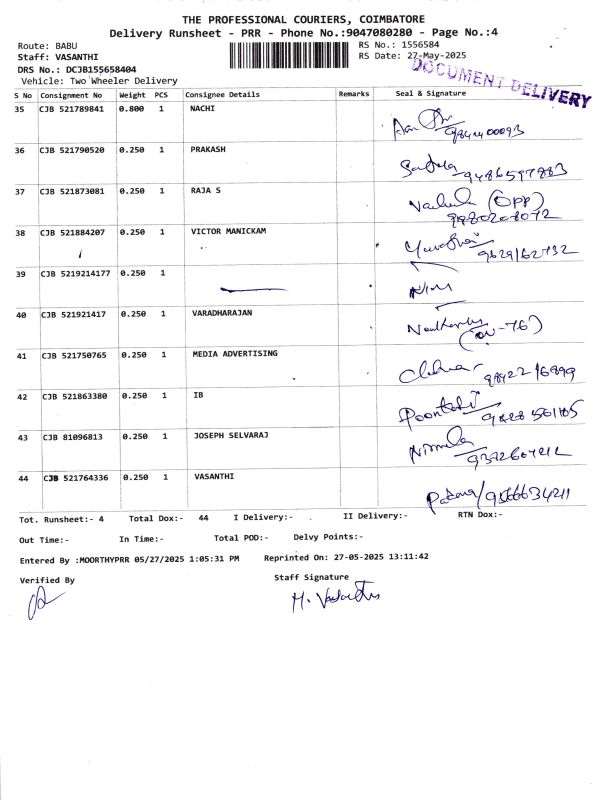 THE PROFESSIONAL COURIERS, COIMBATORE
Delivery Runsheet - PRR - Phone No.:9047080280 - Page No.:4
Route: BABU
RS No.: 1556584
Staff: VASANTHI
RS Date: 27-May-2025
DRS No.: DCJB155658404
DOCUMENT DELIVERY
Vehicle: Two Wheeler Delivery
S No Consignment No Weight PCS Consignee Details Remarks Seal & Signature
35 CJB 521789841 0.800 1 NACHI
36 CJB 521790520 0.250 1 PRAKASH
9486597883
37 CJB 521873081 0.250 1 RAJA S
(OPP)
9980208072
38 CJB 521884207 0.250 1 VICTOR MANICKAM
9629162732
39 CJB 5219214177 0.250 1
40 CJB 521921417 0.250 1 VARADHARAJAN
41 CJB 521750765 0.250 1 MEDIA ADVERTISING
42 CJB 521863380 0.250 1 IB
43 CJB 81096813 0.250 1 JOSEPH SELVARAJ
Nirmala
44 CJB 521764336 0.250 1 VASANTHI
Tot. Runsheet:- 4 Total Dox:- 44 I Delivery:- II Delivery:- RTN Dox:-
Out Time:- In Time:- Total POD:- Delvy Points:-
Entered By :MOORTHYPRR 05/27/2025 1:05:31 PM Reprinted On: 27-05-2025 13:11:42
Verified By Staff Signature